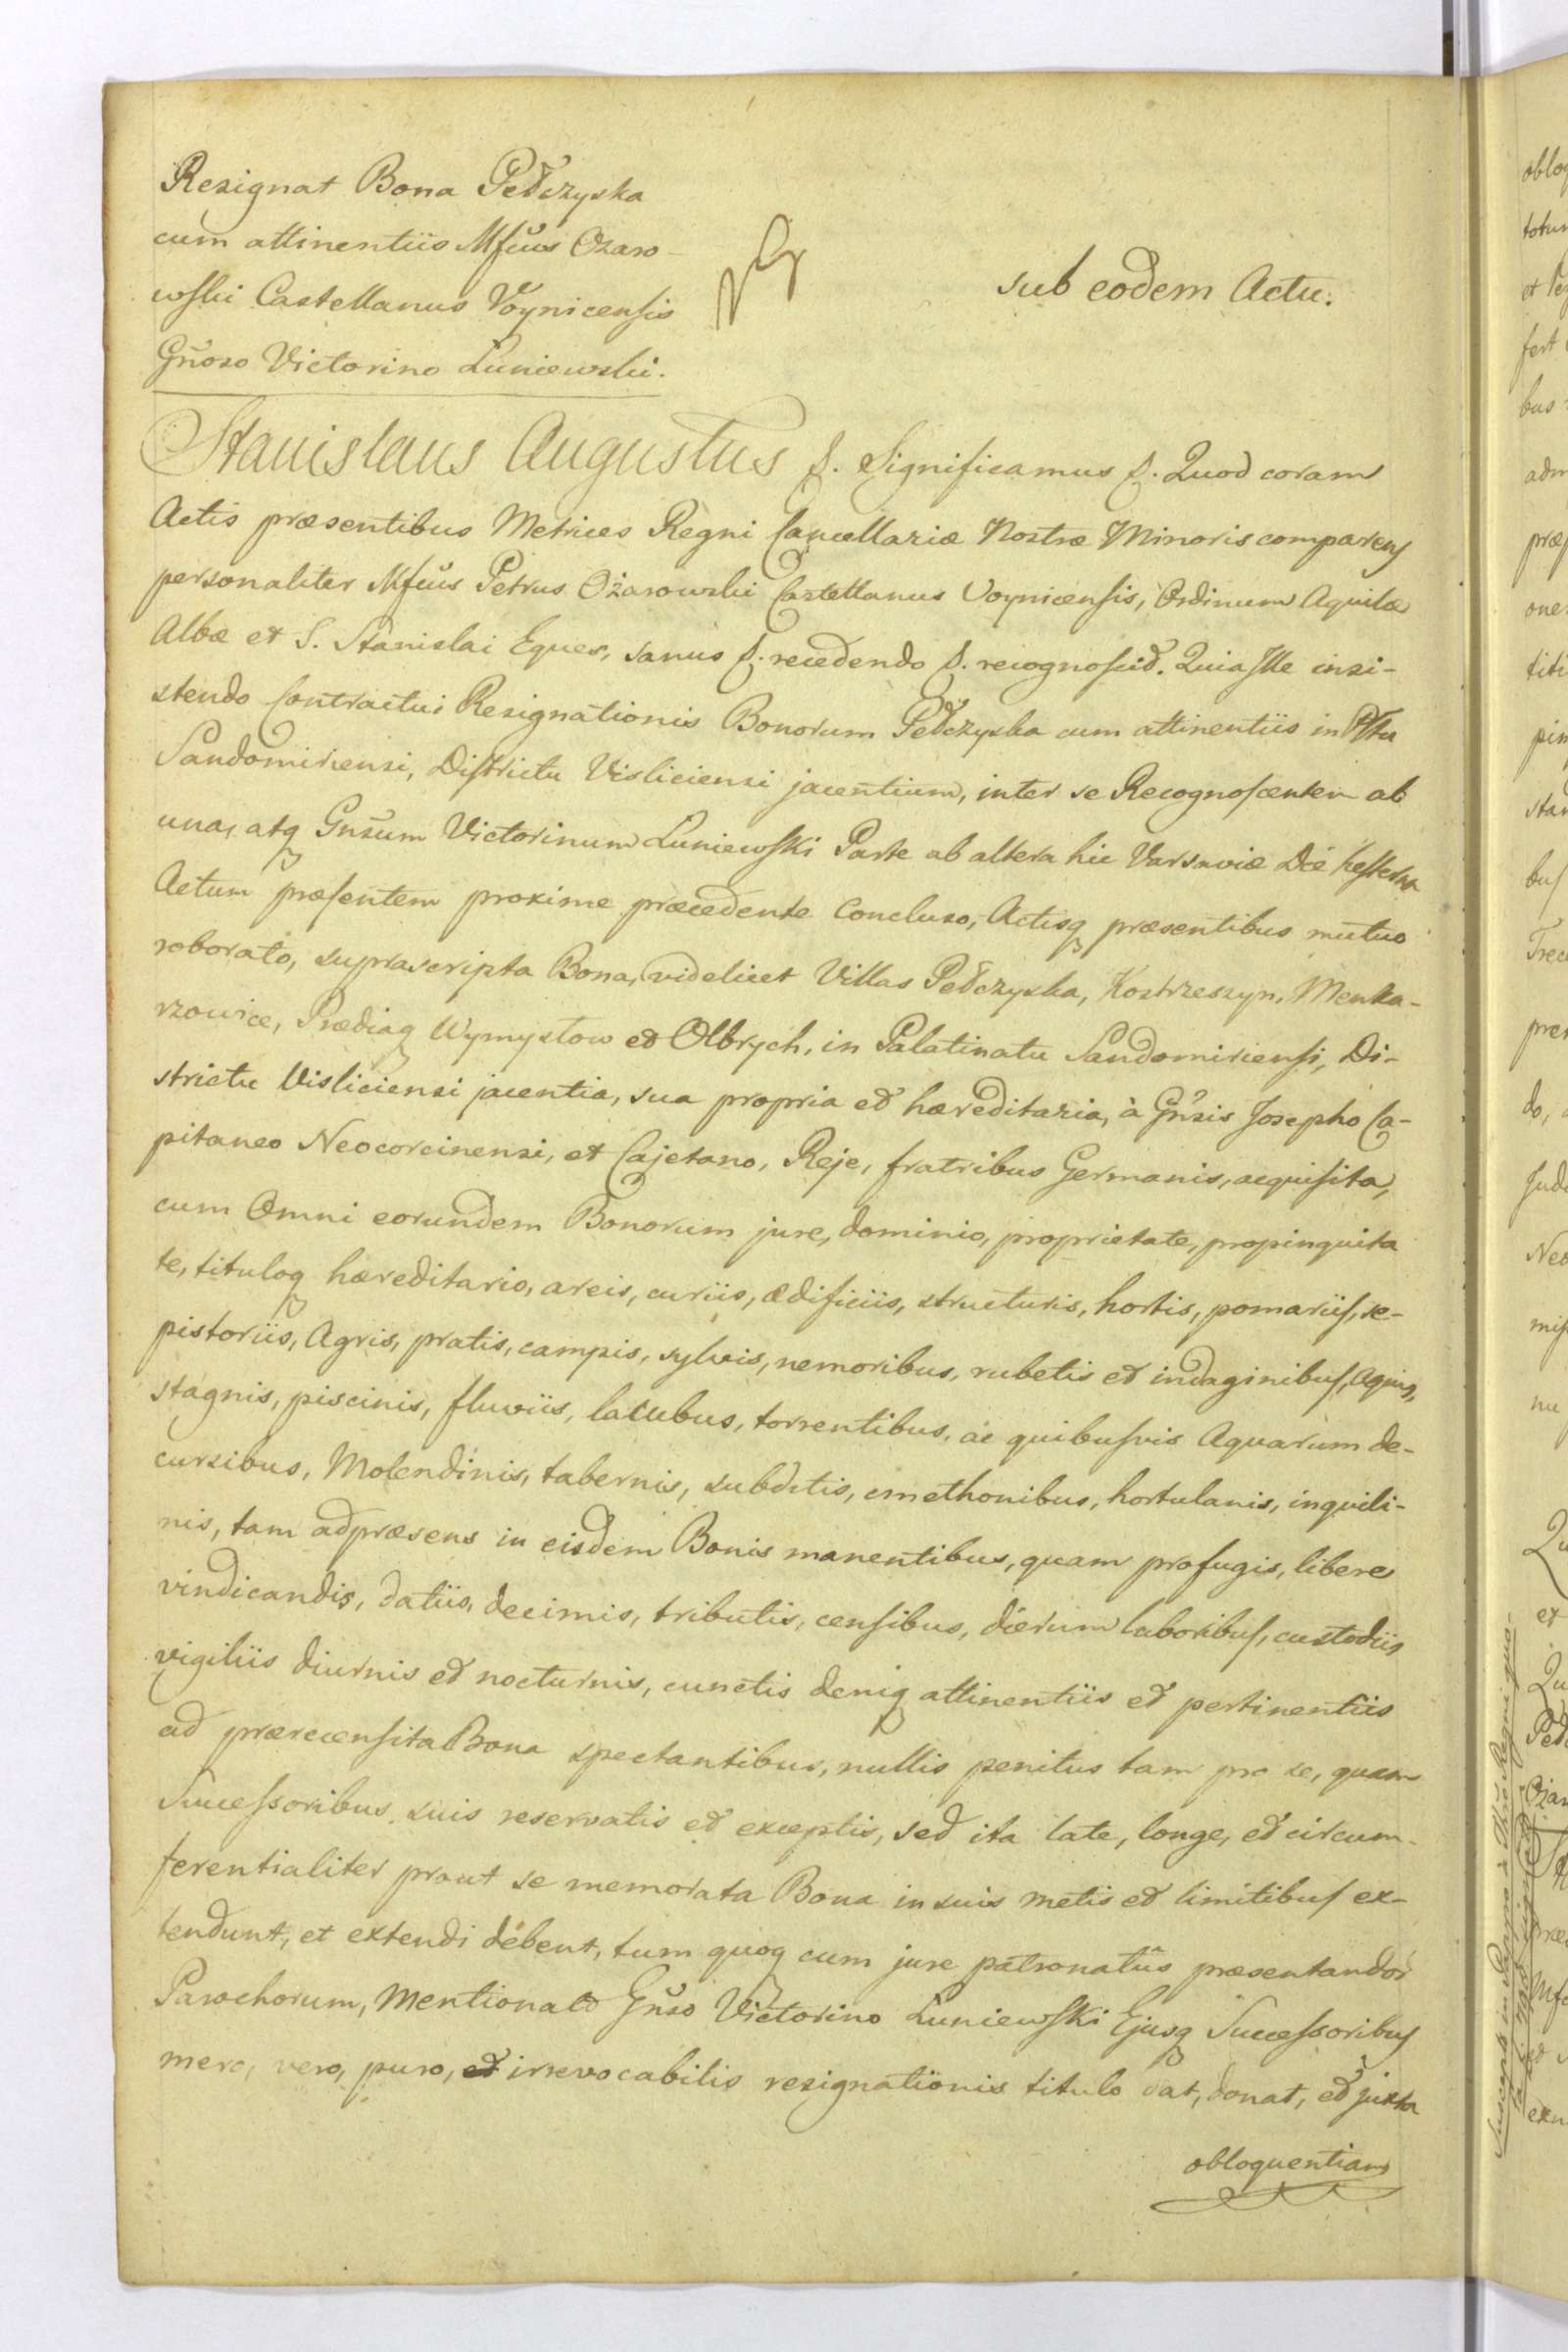 Resignat Bona Pełczyska
cum attinentiis Mfcus Ożaro-
wski Castellanus Voynicensis
Gñoso Victorino Łuniewski.
sub eodem Actu.
Stanislaus Augustus &. Significamus &. Quod coram
Actis præsentibus Metrices Regni Cancellariæ Nostræ Minoris comparens
personaliter Mfcus Petrus Ożarowski Castellanus Voynicensis, Ordinum Aquilæ
Albæ et S. Stanislai Eques, sanus &. recedendo &. recognoscit. Quia Ille insi-
stendo Contractui Resignationis Bonorum Pełczyska cum attinentiis in Pltu
Sandomiriensi, Districtu Visliciensi jacentium, inter se Recognoscentem ab
una, atq Gnsum Victorinum Łuniewski Parte ab altera hic Varsaviæ Die hesterna
Actum præsentem proxime præcedente Concluso, Actisq præsentibus mutuo
roborato, suprascripta Bona, videlicet Villas Pełczyska, Kostrzeszyn, Menka-
rzowice, Prædiaq Wymysłow et Olbrych, in Palatinatu Sandomiriensi, Di-
strictu Visliciensi jacentia, sua propria et hæreditaria, à Gnsis Josepho Ca-
pitaneo Neocorcinensi, et Cajetano, Reje, fratribus Germanis, acquisita,
cum Omni eorundem Bonorum jure, dominio, proprietate, propinquita
te, tituloq hæreditario, areis, curiis, ædificiis, structuris, hortis, pomariis, re-
pistoriis, Agris, pratis, campis, sylvis, nemoribus, rubetis et indaginibus, Aquis,
stagnis, piscinis, fluviis, lacubus, torrentibus, ac quibusvis Aquarum de-
cursibus, Molendinis, tabernis, subditis, cmethonibus, hortulanis, inquili-
nis, tam adpræsens in eisdem Bonis manentibus, quam profugis, libere
vindicandis, datiis, decimis, tributis, censibus, dierum laboribus, custodiis
vigiliis diurnis et nocturnis, cunctis deniq attinentiis et pertinentiis
ad prærecensita Bona spectantibus, nullis penitus tam pro se, quam
Successoribus suis reservatis et exceptis, sed ita late, longe, et circum-
ferentialiter prout se memorata Bona in suis metis et limitibus ex-
tendunt, et extendi debent, tum quoq cum jure patronatûs præsentandor
Parochorum, Mentionato Gñso Victorino Łuniewski Ejusq Successoribus
mero, vero, puro, et irrevocabilis resignationis titulo dat, donat, et juxta
obloquentiam